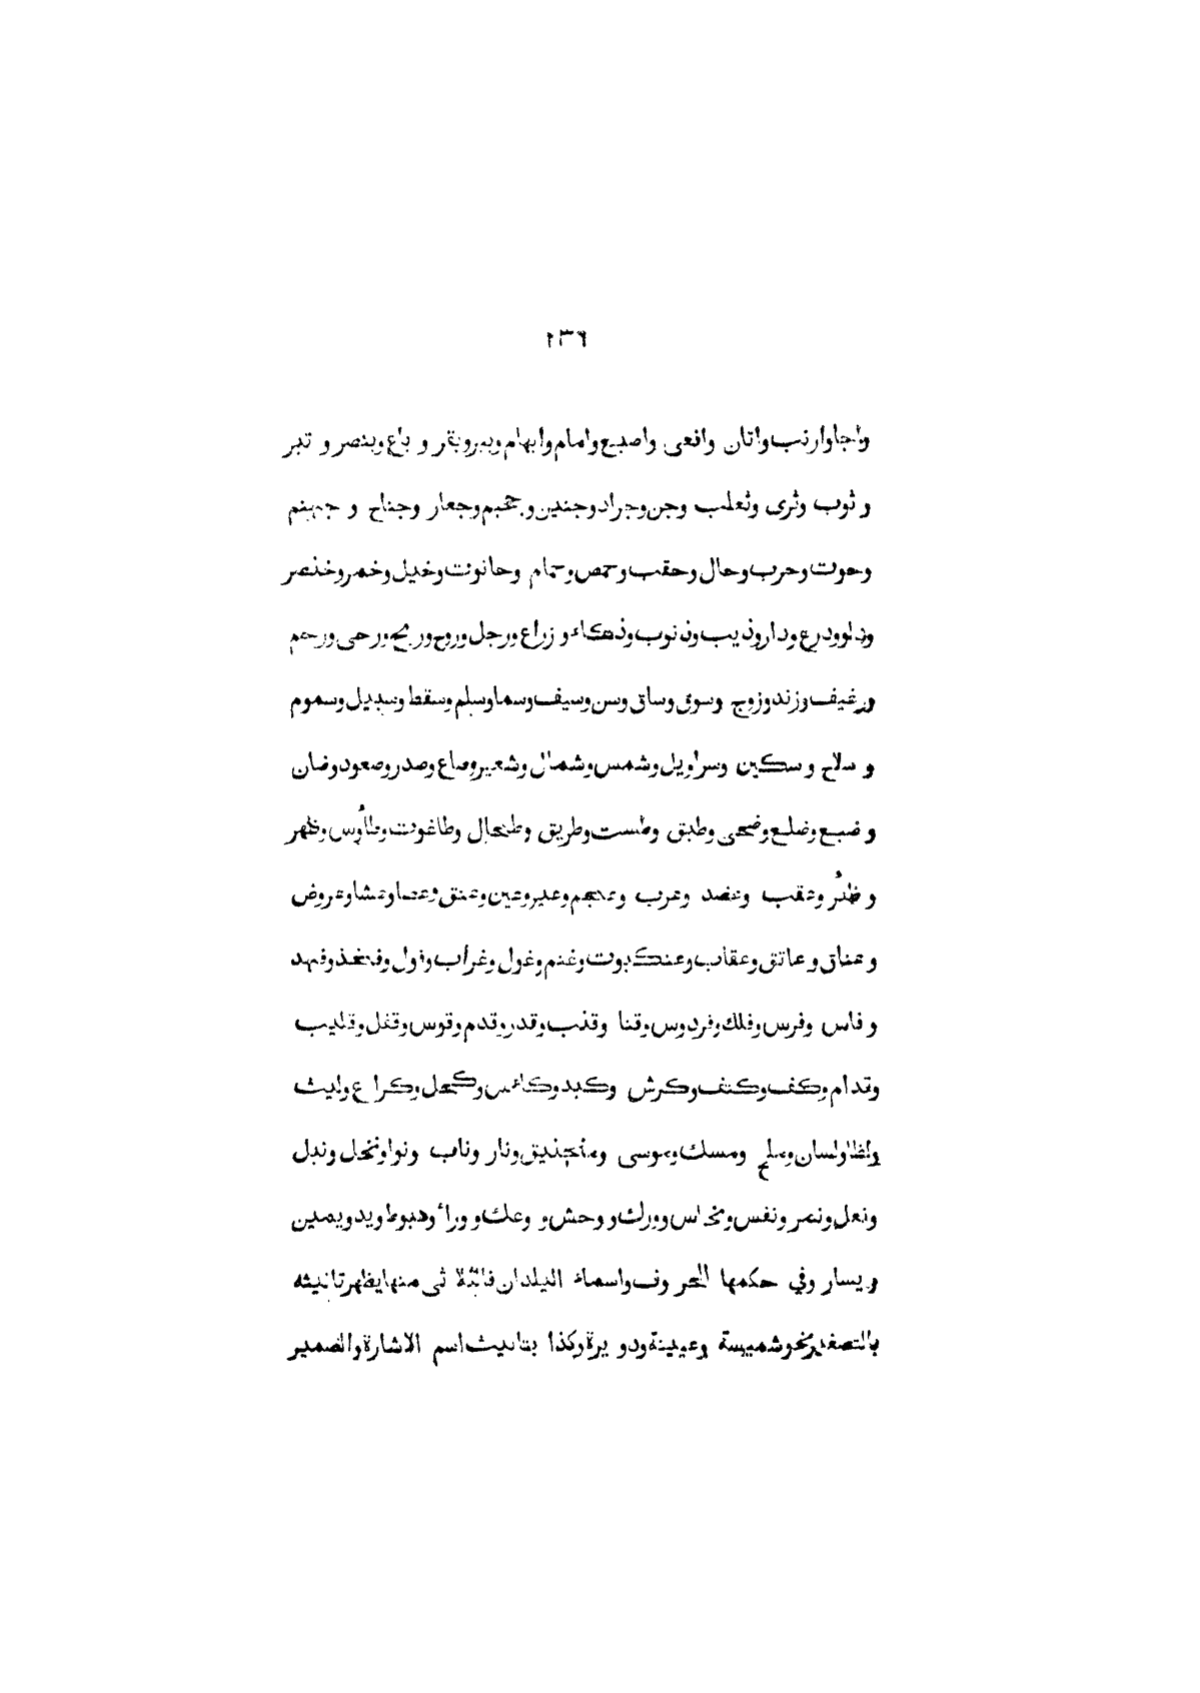 ١٣٦
واجا وارنب واتان وافعى واصبع وامام وابهام وبير وبقر و باع وبنصر و تبر
و ثوب وثرى وثعلب وجن وجراد وجندين وجحيم وجعار وجناح و جهنم
وحوت وحرب وحال وحقب وحمص وحمام وحانوت وخيل وخمر وخنصر
ودلو ودرع ودار وذيب وذنوب وذكاء و زراع ورجل وروح وريح ورحى ورحم
ورغيف وزند وزوج وسوق وساق وسن وسيف وسما وسلم وسقط وسبيل وسموم
و سلاح و سكين وسراويل وشمس وشمال وشعير وصاع وصدر وصعود وضان
و ضبع وضلع وضحى وطبق وطست وطريق وطحال وطاغوت وطاؤس وظهر
و ظئر وعقب وعضد وعرب وعجم وعير وعين وعنق وعصا وعشا وعروض
و عناق و عاتق وعقاب وعنكبوت وغنم وغول وغراب وفول وفخذ وفهد
و فاس وفرس وفلك وفردوس وقنا وقتب وقدر وقدم وقوس وقفل وقليب
وقدام وكف وكتف وكرش وكبد وكاس وكحل وكراع وليث
ولظا ولسان وملح ومسك وموسى ومنجنيق ونار وناب ونوا ونخل ونبل
ونعل ونمر ونفس ونحاس وورك و وحش و وعك و وراء وهبوط ويد ويمين
ويسار وفي حكمها الحروف واسماء البلدان فائدة ثى منها يظهر تانيثه
بالتصغير نحو شميسة وعيينة ودويرة وكذا بتانيث اسم الاشارة والضمير